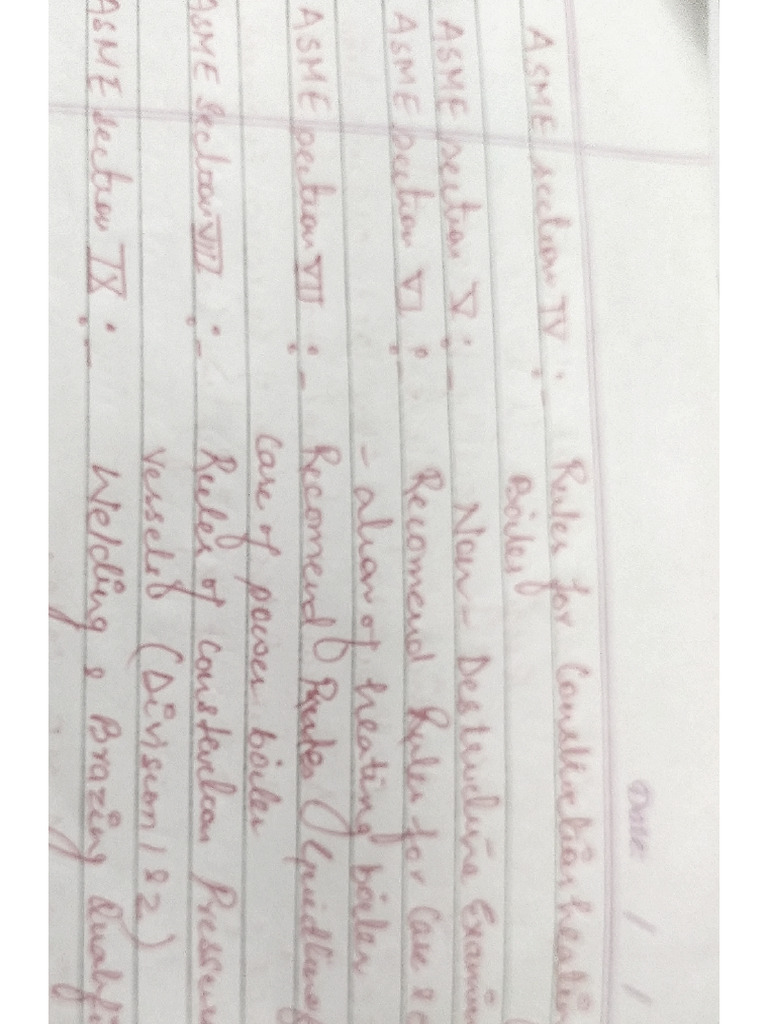 Date / /
ASME section IV :- Rules for Construction heatin
Boiler
ASME section V :- Non-Destructive Examin
ASME section VI :- Recomend Rules for Care & o
-ation of heating boiler
ASME section VII :- Recomend Rules / Guidlines
Care of power boiler
ASME section VIII :- Rules of construction Pressure
Vessels (Division 1 & 2)
ASME section IX :- Welding & Brazing Qualifi